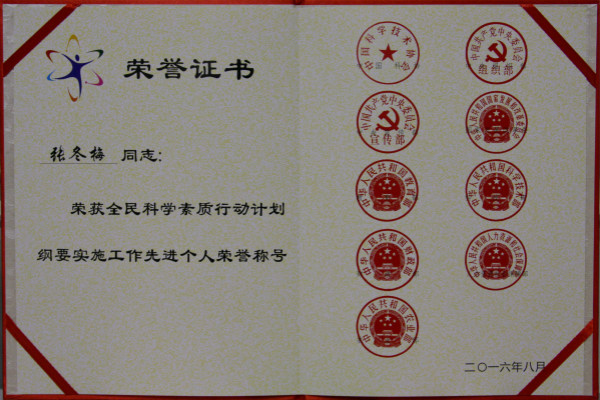 荣誉证书
张冬梅 同志:
荣获全民科学素质行动计划
纲要实施工作先进个人荣誉称号
中国科学技术协会
中国共产党中央委员会
组织部
中国共产党中央委员会
宣传部
中华人民共和国国家发展和改革委员会
中华人民共和国教育部
中华人民共和国科学技术部
中华人民共和国财政部
中华人民共和国人力资源和社会保障部
中华人民共和国农业部
二〇一六年八月